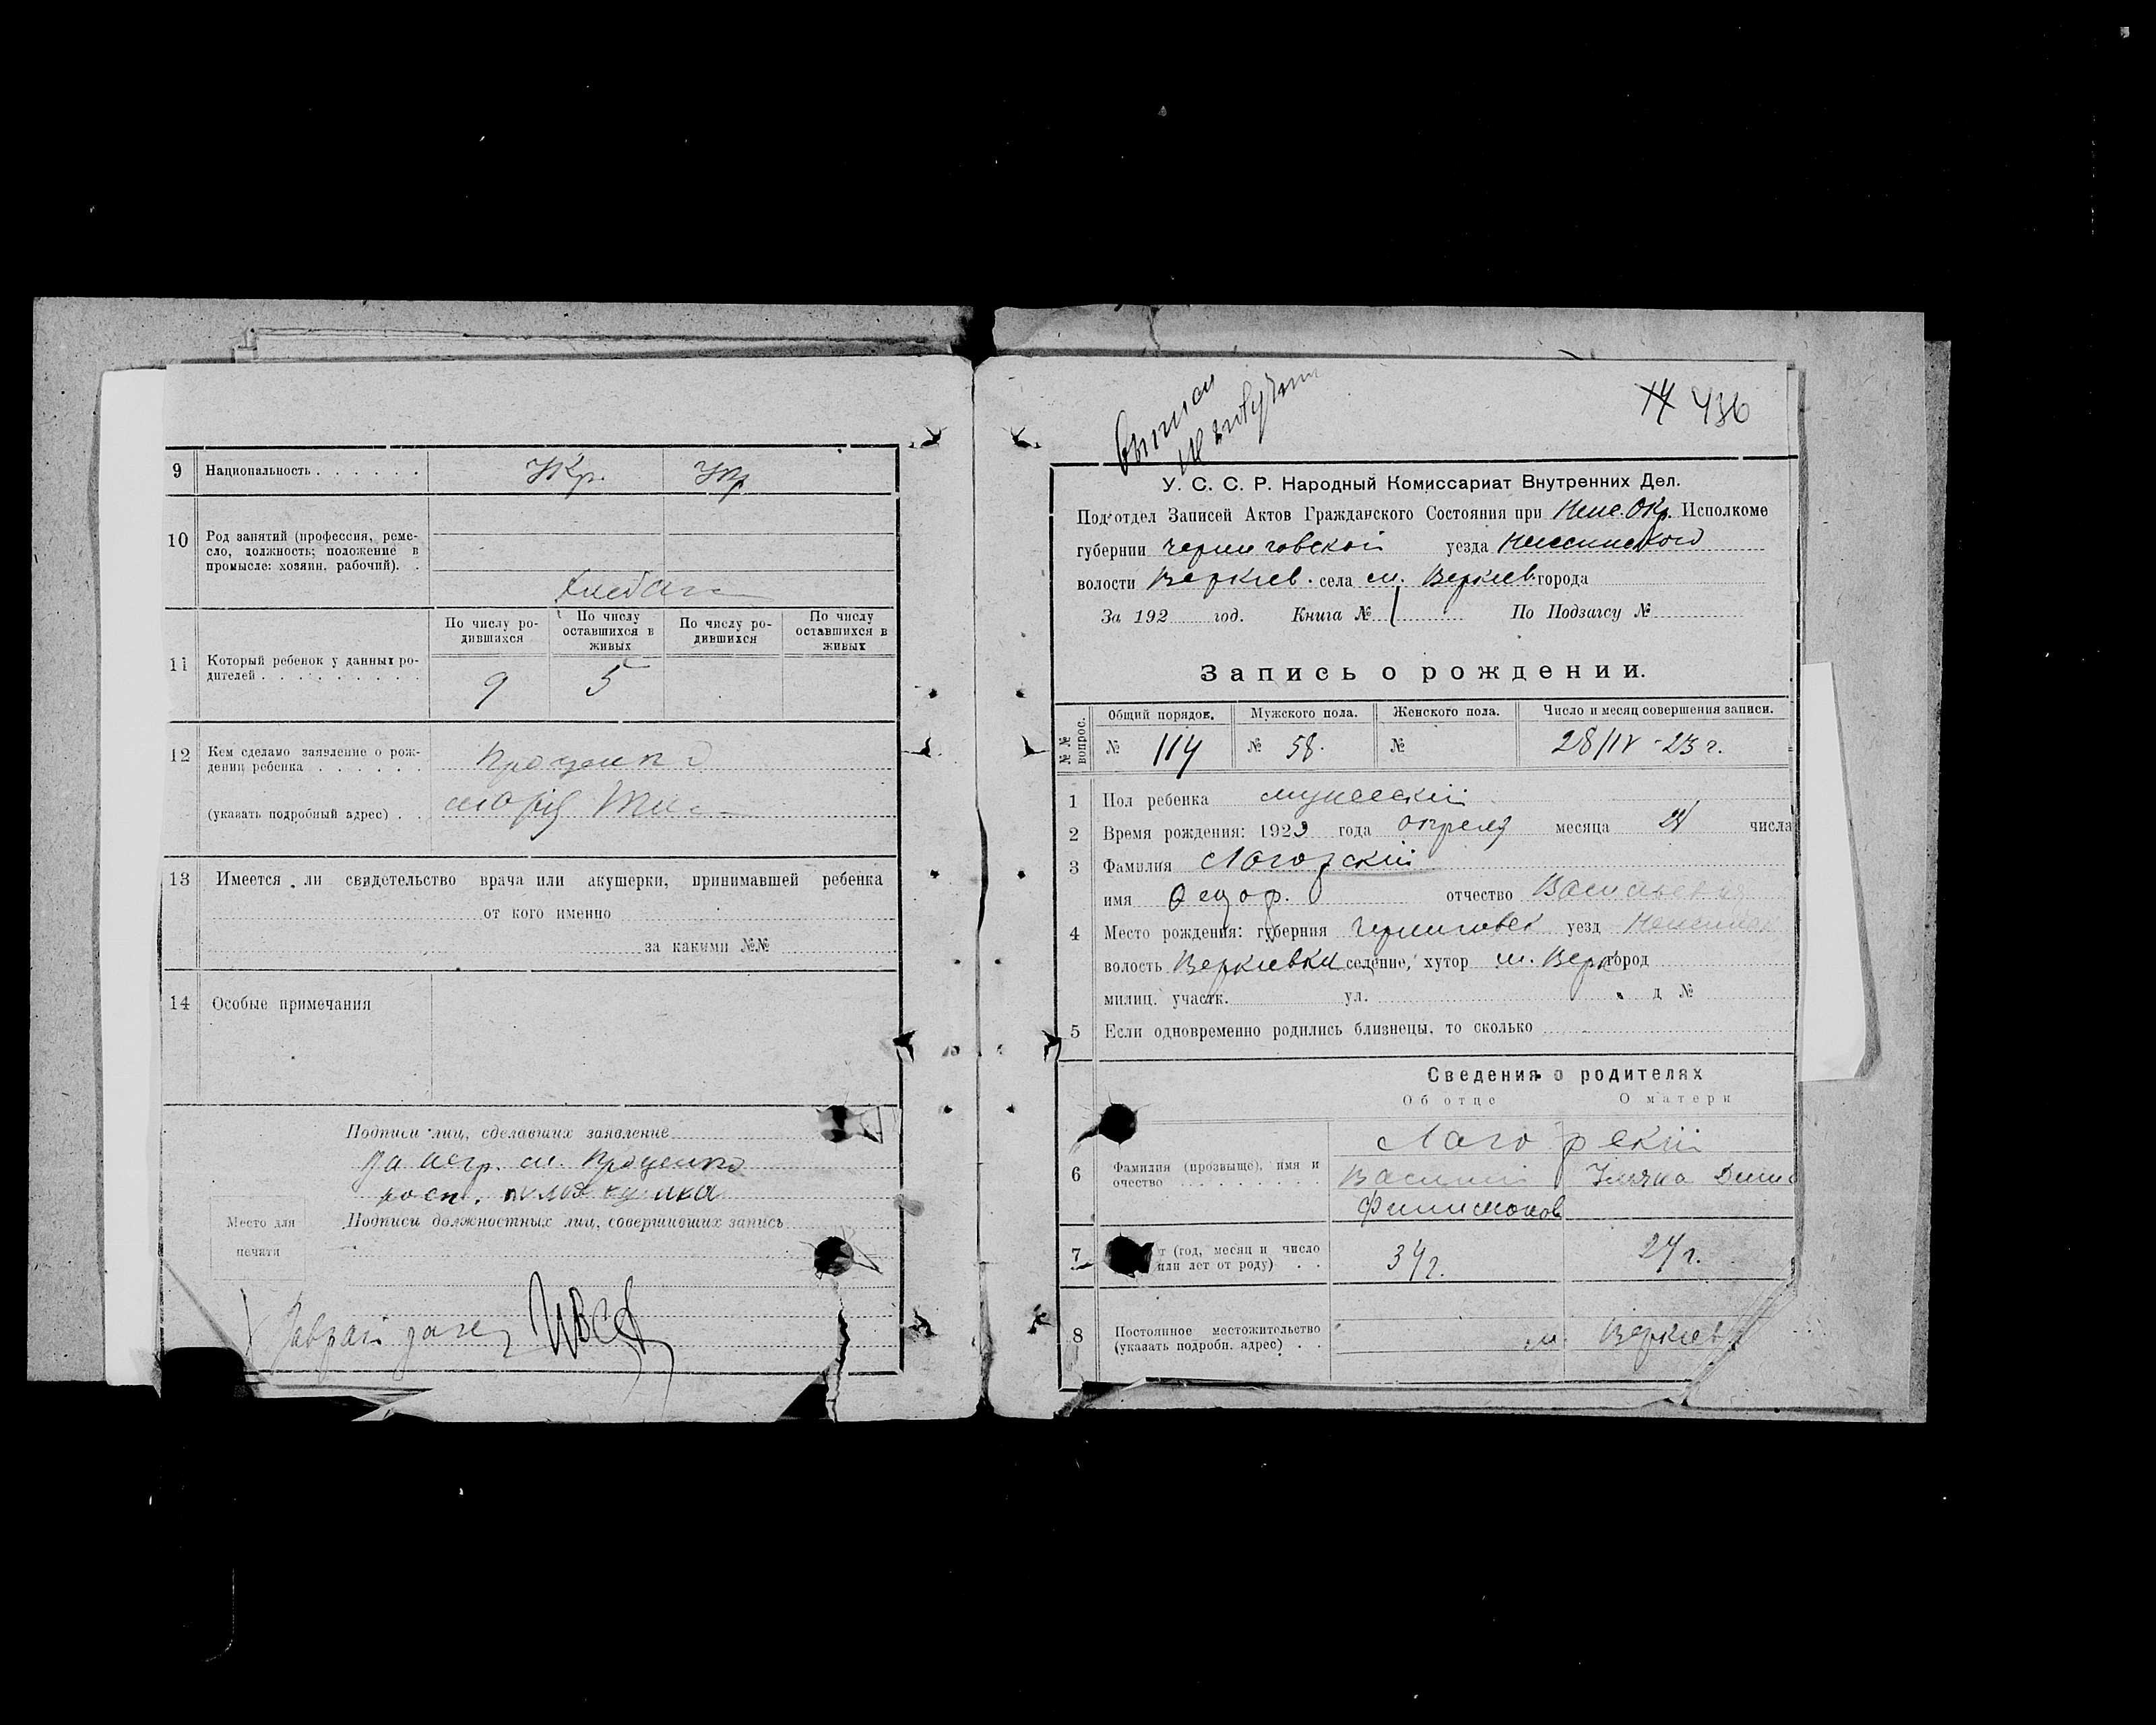 9 Национальность . . . . . . Укр. Укр
10 Род занятий (профессия, реме-
сло, должность; положение в
промысле: хозяин, рабочий). .
По числу ро-
дившихся
По числу
оставшихся в
живых
По числу ро-
дившихся
По числу
оставшихся в
живых
11 Который ребенок у данных ро-
дителей . . . . . . . . .
9 5
12 Кем сделано заявление о рож-
дении ребенка . . . . . . Проценко
(указать подробный адрес) . .
13 Имеется ли свидетельство врача или акушерки, принимавшей ребенка
от кого именно
за какими №№
14 Особые примечания
Подписи лиц, сделавших заявление
За негр. м. Проценко
росп.
Место для
печати
Подписи должностных лиц, совершивших запись
14 436
У. С. С. Р. Народный Комиссариат Внутренних Дел.
Подотдел Записей Актов Гражданского Состояния при Неж. Окр. Исполкоме
губернии Черниговской уезда Нежинского
волости Веркиев. села м. Веркиев. города
За 192 год. Книга № 1 По Подзагсу №
Запись о рождении.
№№ вопрос.
Общий порядок. Мужского пола. Женского пола. Число и месяц совершения записи.
№ 114 № 58. № 28/IV - 23 г.
1 Пол ребенка мужеский
2 Время рождения: 1923 года апреля месяца числа
3 Фамилия Лагорский
имя Федор. отчество Васильевич
4 Место рождения: губерния Черниговск уезд Нежинск
волость Веркиевки селение, хутор м. Верк город
милиц. участк. ул. д №
5 Если одновременно родились близнецы, то сколько
Сведения о родителях
Об отце О матери
Лагорский
6 Фамилия (прозвыще), имя и
очество . . . . . . . . .
Василий
Филимонов
7 т (год, месяц и число
или лет от роду) . . 34 г. 24 г.
8 Постоянное местожительство
(указать подробн. адрес) . . м. Веркиев